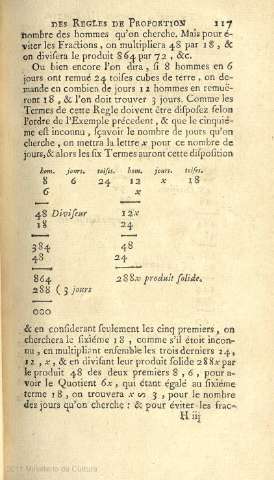 DES REGLES DE PROPORTION 117
nombre des hommes qu'on cherche. Mais pour é-
viter les Fractions, on multipliera 48 par 18, &
on divisera le produit 864 par 72, &c.
Ou bien encore l'on dira, si 8 hommes en 6
jours ont remué 24 toises cubes de terre, on de-
mande en combien de jours 12 hommes en remuë-
ront 18, & l'on doit trouver 3 jours. Comme les
Termes de cette Regle doivent être disposez selon
l'ordre de l'Exemple précedent, & que le cinquié-
me est inconnu, sçavoir le nombre de jours qu'on
cherche, on mettra la lettre x pour ce nombre de
jours, & alors les six Termes auront cette disposition
hom. jours. toises. hom. jours. toises.
8 6 24 12 x 18
6 x
48 Diviseur 12x
18 24
384 48
48 24
864 288x produit solide.
288 ( 3 jours
000
& en considerant seulement les cinq premiers, on
cherchera le sixiéme 18, comme s'il étoit incon-
nu, en multipliant ensemble les trois derniers 24,
12, x, & en divisant leur produit solide 288x par
le produit 48 des deux premiers 8, 6, pour a-
voir le Quotient 6x, qui étant égalé au sixiéme
terme 18, on trouvera x ∽ 3, pour le nombre
des jours qu'on cherche : & pour éviter les frac-
H iij
2011 Ministerio de Cultura